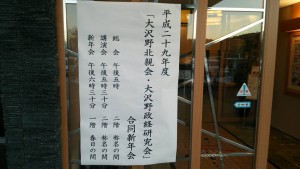 平成二十九年度
「大沢野北親会・大沢野政経研究会」
合同新年会
総会 午後五時 二階 椿名の間
講演会 午後五時三十分 二階 椿名の間
新年会 午後六時三十分 一階 春日の間